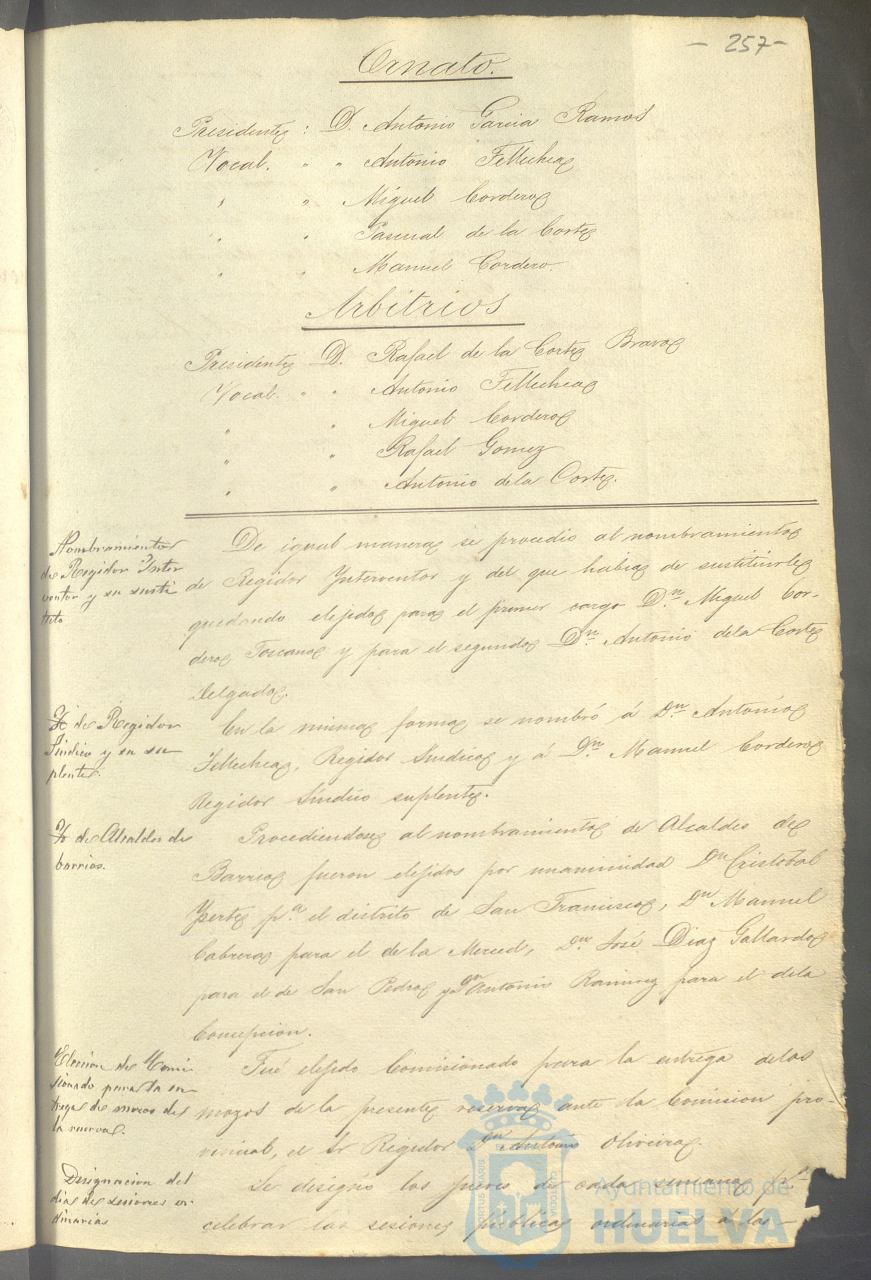 - 257 -
Ornato.
Presidente: D. Antonio Garcia Ramos
Vocal. " " Antonio Fellechea
" " Miguel Cordero
" " Pascual de la Corte
" " Manuel Cordero.
Arbitrios
Presidente D. Rafael de la Corte Bravo
Vocal. " " Antonio Fellechea
" " Miguel Cordero
" " Rafael Gomez
" " Antonio dela Corte.
Nombramiento
de Regidor Inter
ventor y su susti
tuto
De igual manera se procedio al nombramiento
de Regidor Ynterventor y del que habia de sustituirle
quedando elejido para el primer cargo Dn. Miguel Cor-
dero Toscano y para el segundo Dn. Antonio dela Corte
Delgado.
Yd de Regidor
Síndico y su su
plente.
En la misma forma se nombró á Dn Antonio
Fellechea, Regidor Sindico y á Dn. Manuel Cordero
Regidor Síndico suplente.
Yd de Alcaldes de
barrios.
Procediendose al nombramiento de Alcaldes de
Barrio fueron elejidos por unanimidad Dn Cristobal
Yserte pa. el distrito de San Francisco, Dn Manuel
Cabrera para el de la Merced, Dn. José Diaz Gallardo
para el de San Pedro y Dn Antonio Ramirez para el dela
Concepcion.
Eleccion de Comi
sionado para la en
trega de mozos de
la reserva.
Fué elejido Comisionado para la entrega delos
mozos de la presente reserva ante la Comision pro-
vincial, el Sr Regidor Dn Antonio Oliveira.
Designacion del
dia de sesiones or
dinarias
Se designó los jueves de cada semana pa.
celebrar las sesiones públicas ordinarias á las
Ayuntamiento de
HUELVA